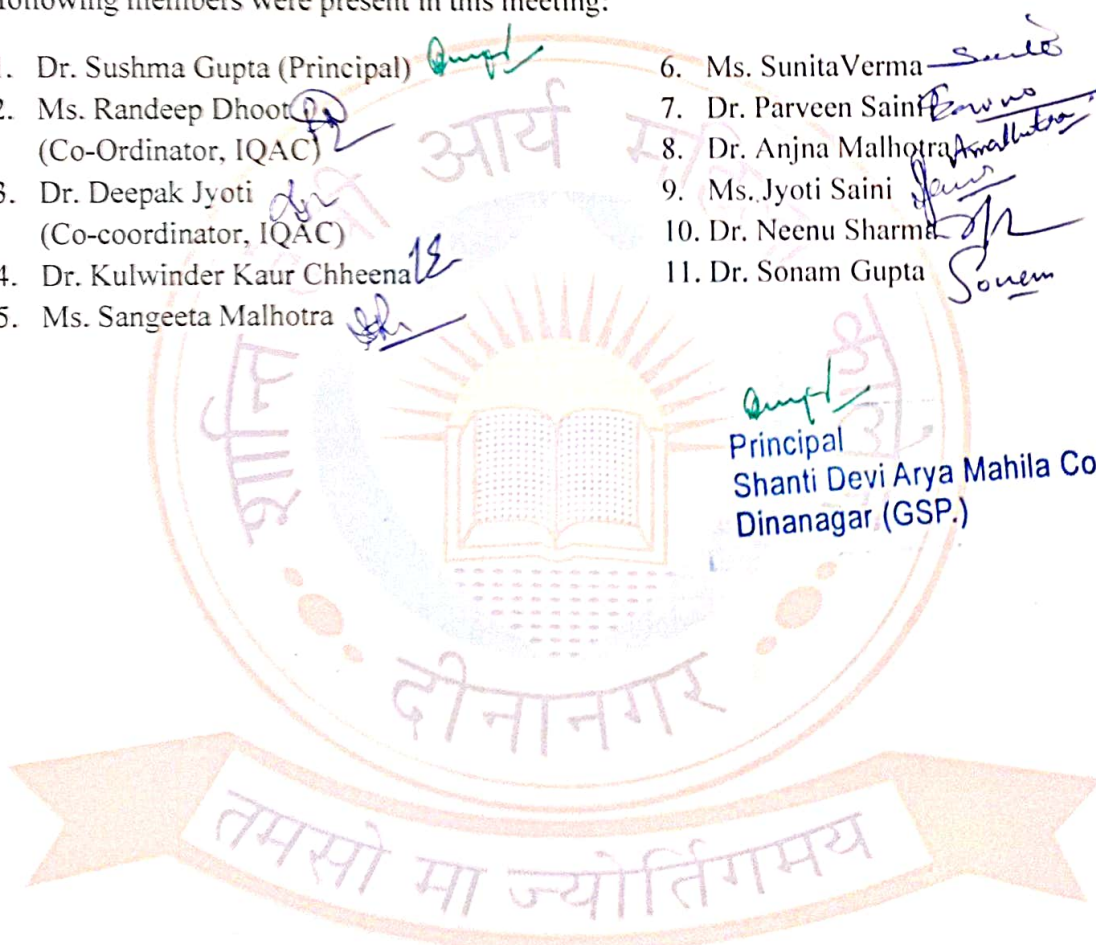 following members were present in this meeting:
1. Dr. Sushma Gupta (Principal)
2. Ms. Randeep Dhoot
(Co-Ordinator, IQAC)
3. Dr. Deepak Jyoti
(Co-coordinator, IQAC)
4. Dr. Kulwinder Kaur Chheena
5. Ms. Sangeeta Malhotra
6. Ms. SunitaVerma
7. Dr. Parveen Saini
8. Dr. Anjna Malhotra
9. Ms. Jyoti Saini
10. Dr. Neenu Sharma
11. Dr. Sonam Gupta Sonam
Principal
Shanti Devi Arya Mahila Co
Dinanagar (GSP.)
शान्ति देवी आर्य
दीनानगर
तमसो मा ज्योर्तिगमय